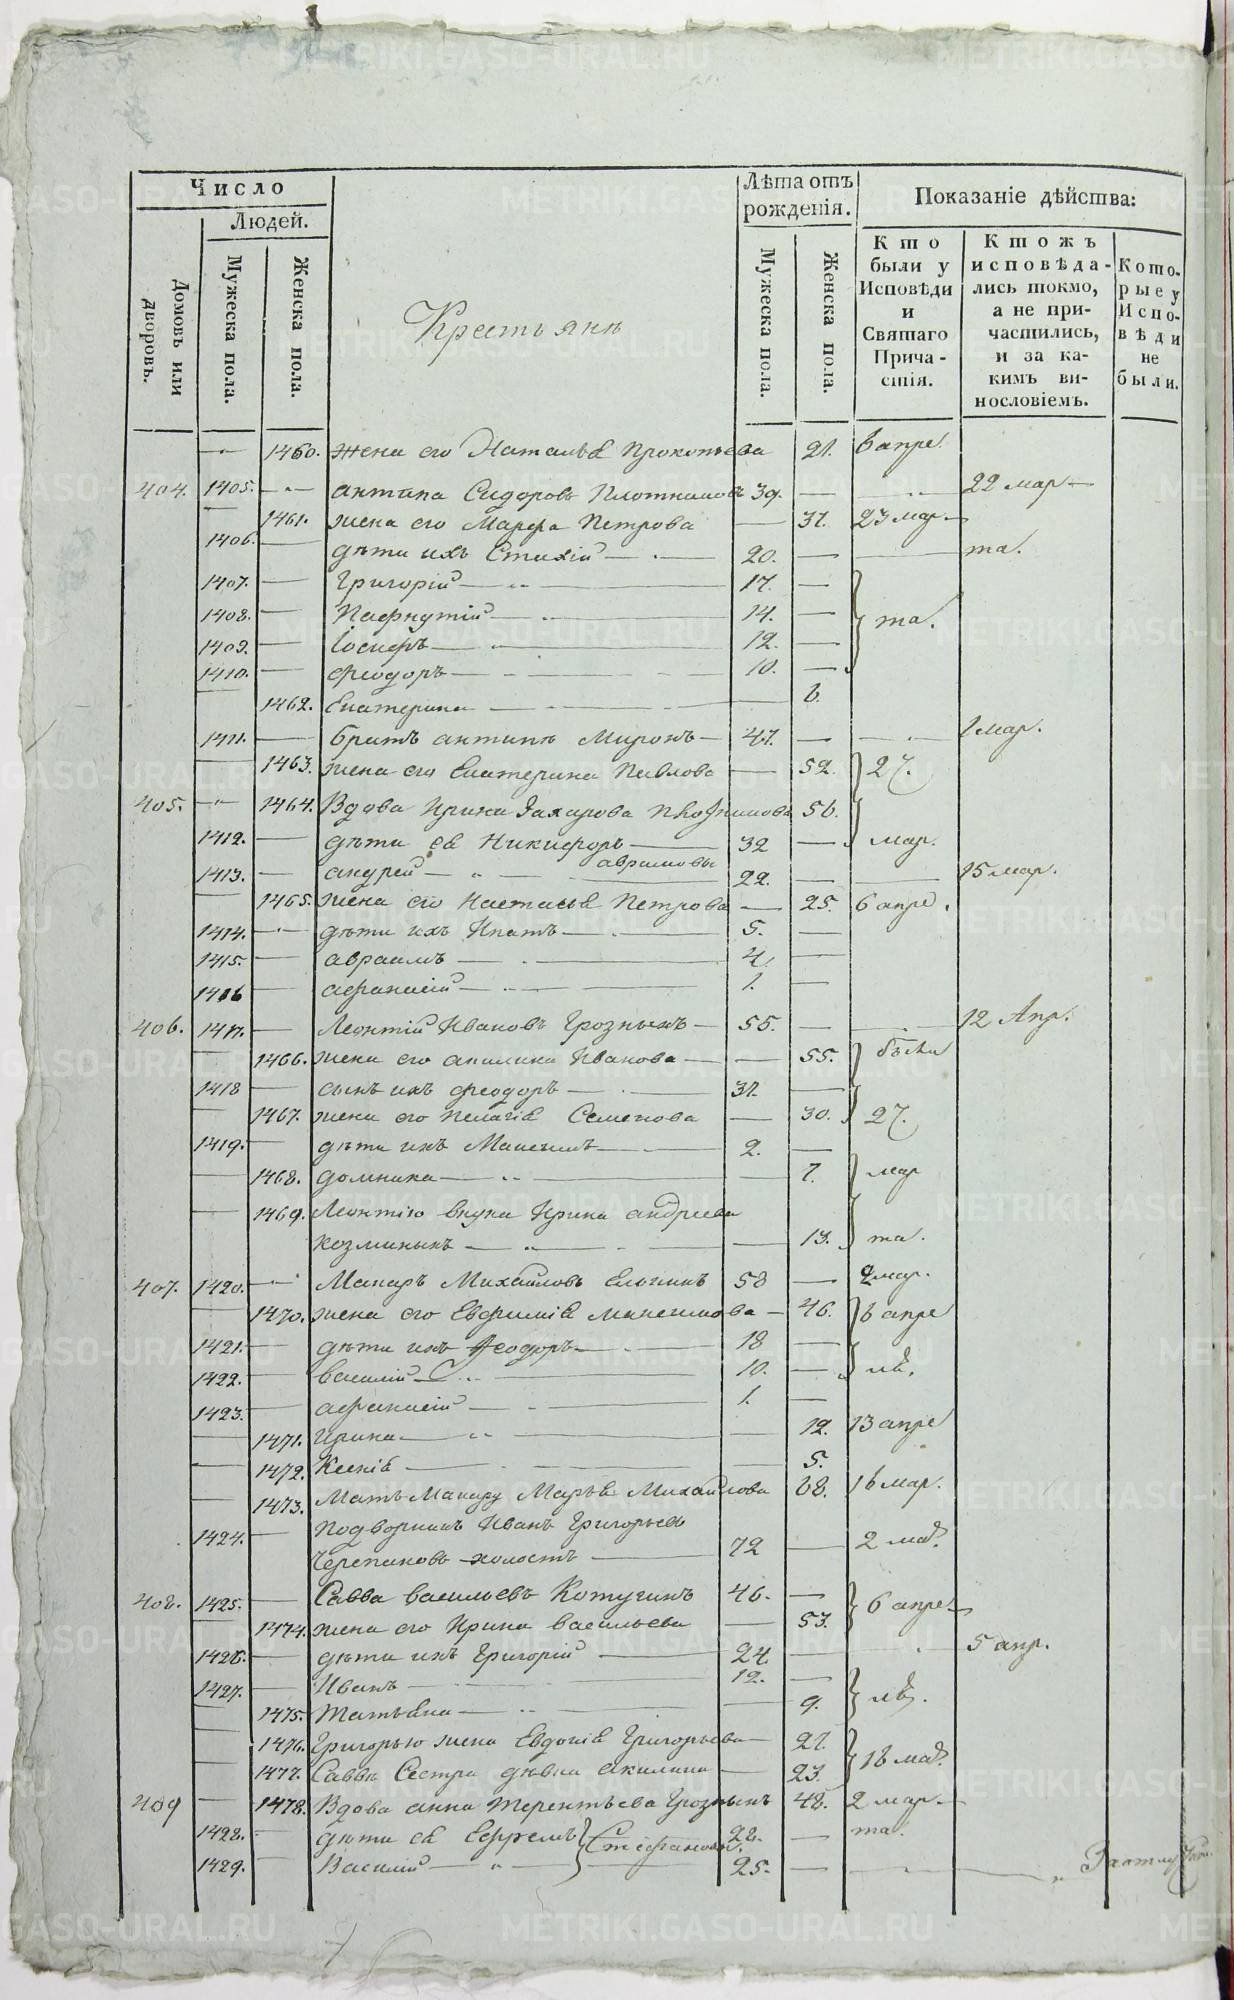 Число
Людей.
Домовъ или дворовъ.
Мужеска пола.
Женска пола.
Крестьянъ
Лѣта отъ рожденія.
Мужеска пола.
Женска пола.
Показаніе дѣйства:
Кто были у Исповѣди и Святаго Причастія.
Ктожъ исповѣдались токмо, а не причастились, и за какимъ винословіемъ.
Которые у Исповѣди не были.
1460. жена его Наталья Прокопьева 21. 6 апре.
404. 1405. антипа Сидоровъ Плотниковъ 39. 22 мар
1461. жена его Марфа Петрова 37. 23 мар
1406. дѣти ихъ Стахій 20. та.
1407. Григорій 17.
1408. Пафнутій 14. та.
1409. Іосифъ 12.
1410. феодоръ 10.
1462. Екатерина 6.
1411. братъ антипѣ Миронъ 47. мар.
1463. жена его Екатерина Павлова 52. 27.
405. 1464. Вдова Ирина Захарова 56.
1412. дѣти ея Никифоръ 32 мар.
1413. андрей аврамовы 22. 15 мар.
1465. жена его Настасья Петрова 25. 6 апре.
1414. дѣти ихъ Ипатъ 5.
1415. авраамъ 4
1416 афанасій 1.
406. 1417. Леонтій Ивановъ Грозныхъ 55. 12 Апр.
1466. жена его акилина Иванова 55.
1418 сынъ ихъ феодоръ 31.
1467. жена его Пелагія Семенова 30. 27.
1419. дѣти ихъ Максимъ 2.
1468. домника 7. мар
1469. Леонтію внука Ирина андреева
козминыхъ 13. та.
407. 1420. Макаръ Михайловъ Елькинъ 58 2 мар.
1470. жена его Евфимія максимова 46. 6 апре
1421. дѣти ихъ Феодоръ 18
1422. василій 10.
1423. афанасій 1.
1471. Ирина 12. 13 апре
1472. Ксенія 5.
1473. Мать Макару Марья Михайлова 68. 16 мар.
1424. Подворникъ Иванъ Григорьевъ
Черепановъ холостъ 72 2 мар.
408. 1425. Савва васильевъ Котугинъ 46.
1474. жена его Ирина васильева 53. 6 апре
1426. дѣти ихъ Григорій 24. 5 апр.
1427. Иванъ 12.
1475. Татьяна 9.
1476. Григорью жена Евдокія Григорьева 27.
1477. Саввѣ Сестра дѣвка акилина 23. 16 мар.
409 1478. Вдова анна терентьева Грозныхъ 48. 2 мар.
1428. дѣти ея Ефремъ Стефановы. 28. та.
1429. Василій 25.
METRIKI.GASO-URAL.RU